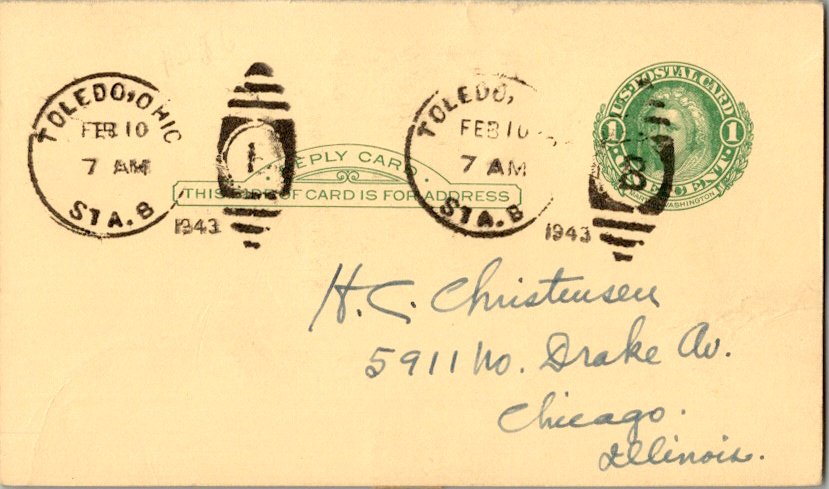 TOLEDO, OHIO
FEB 10
7 AM
STA. B
1943
1
REPLY CARD.
THIS SIDE OF CARD IS FOR ADDRESS
TOLEDO,
FEB 10
7 AM
STA. B
1943
8
U.S. POSTAL CARD
1 1
ONE CENT
WASHINGTON
H. C. Christensen
5911 No. Drake Av.
Chicago.
Illinois.